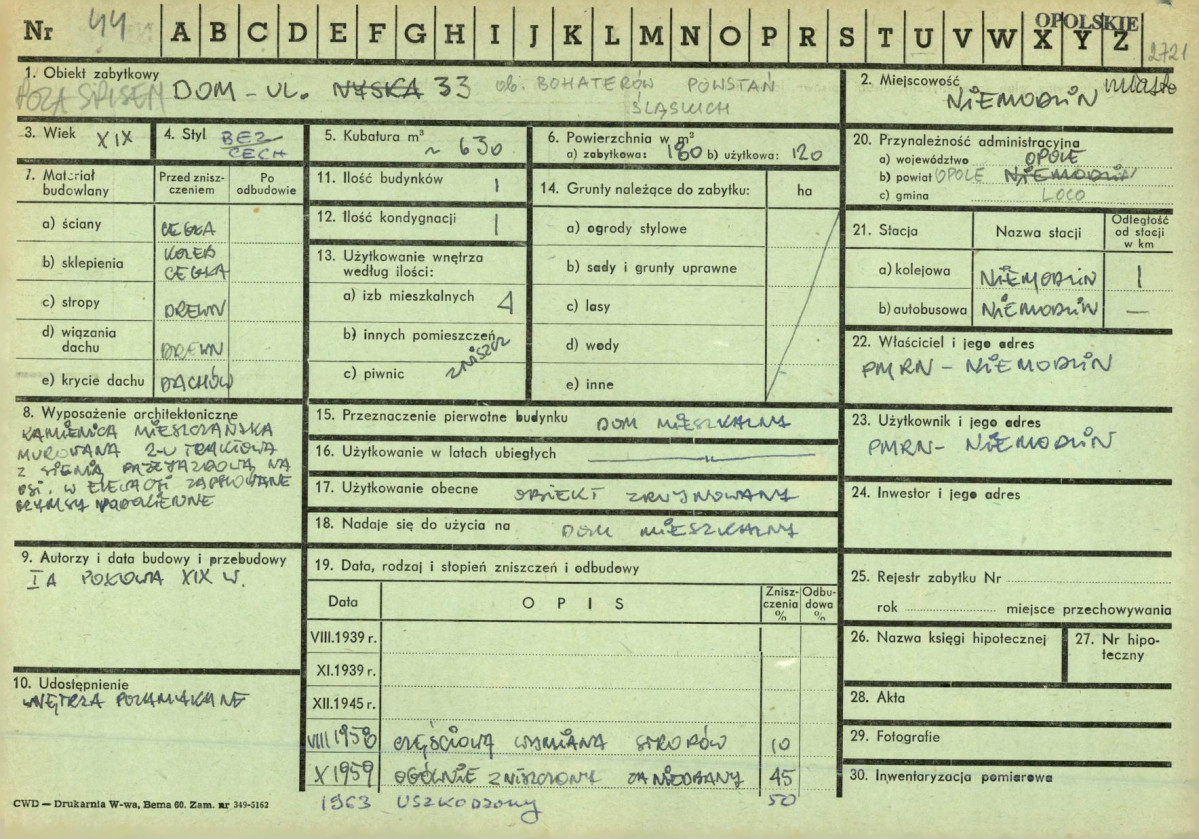 Nr 44 A B C D E F G H I J K L M N O P R S T U V W X Y Z OPOLSKIE
2721
1. Obiekt zabytkowy
POZA SPISEM DOM – UL. NYSKA 33 ob. BOHATERÓW POWSTAŃ
ŚLĄSKICH
2. Miejscowość miasto
NIEMODLIN
3. Wiek XIX
4. Styl BEZ
CECH
5. Kubatura m³
~ 630
6. Powierzchnia w m²
a) zabytkowa: 180 b) użytkowa: 120
20. Przynależność administracyjna
a) województwo OPOLE
b) powiat OPOLE NIEMODLIN
c) gmina LOCO
7. Materiał
budowlany
Przed znisz-
czeniem
Po
odbudowie
a) ściany CEGŁA
b) sklepienia KOLEB
CEGŁA
c) stropy DREWN
d) wiązania
dachu DREWN
e) krycie dachu DACHÓW
11. Ilość budynków 1
12. Ilość kondygnacji 1
13. Użytkowanie wnętrza
według ilości:
a) izb mieszkalnych 4
b) innych pomieszczeń
zniszcz
c) piwnic
14. Grunty należące do zabytku: ha
a) ogrody stylowe
b) sady i grunty uprawne
c) lasy
d) wody
e) inne
21. Stacja Nazwa stacji Odległość
od stacji
w km
a) kolejowa NIEMODLIN 1
b) autobusowa NIEMODLIN —
22. Właściciel i jego adres
PMRN – NIEMODLIN
8. Wyposażenie architektoniczne
KAMIENICA MIESZCZAŃSKA
MUROWANA 2-U TRAKTOWA
Z SIENIĄ PRZEJAZDOWĄ NA
OSI. W ELEWACJI ZACHOWANE
GZYMSY PODOKIENNE
15. Przeznaczenie pierwotne budynku DOM MIESZKALNY
16. Użytkowanie w latach ubiegłych
17. Użytkowanie obecne OBIEKT ZRUJNOWANY
18. Nadaje się do użycia na DOM MIESZKALNY
23. Użytkownik i jego adres
PMRN – NIEMODLIN
24. Inwestor i jego adres
9. Autorzy i data budowy i przebudowy
I A POŁOWA XIX W.
19. Data, rodzaj i stopień zniszczeń i odbudowy
Data O P I S Znisz-
czenia
% Odbu-
dowa
%
VIII.1939 r.
XI.1939 r.
XII.1945 r.
VIII 1958 CZĘŚCIOWA WYMIANA STROPÓW 10
X 1959 OGÓLNIE ZNISZCZONY ZANIEDBANY 45
1963 USZKODZONY 50
25. Rejestr zabytku Nr
rok miejsce przechowywania
26. Nazwa księgi hipotecznej
27. Nr hipo-
teczny
10. Udostępnienie
WNĘTRZA POZAMYKANE
28. Akta
29. Fotografie
30. Inwentaryzacja pomiarowa
CWD — Drukarnia W-wa, Bema 60. Zam. nr 349-5162